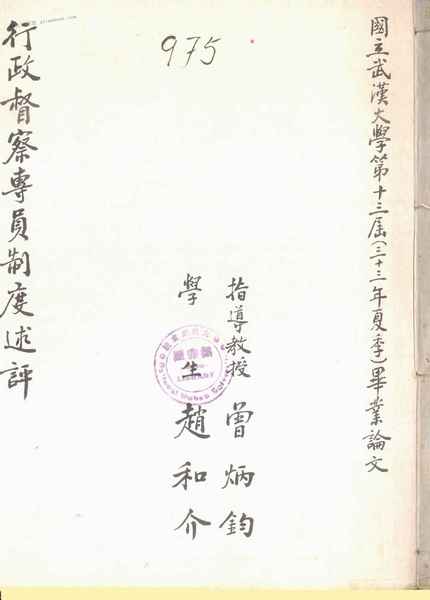 國立武漢大學第十三屆(三十三年夏季)畢業論文
指導教授 曾炳鈞
學生 趙和介
行政督察專員制度述評
975
圖書館
LIBRARY